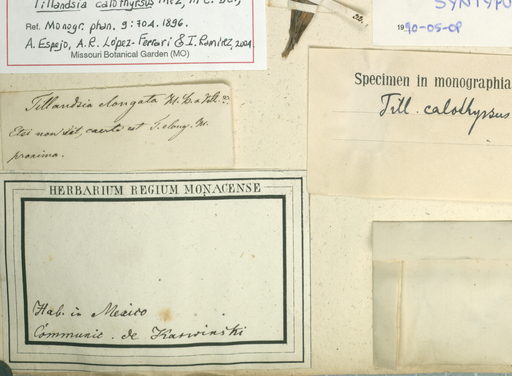 Tillandsia calothyrsus Mez, in C. DC.,
Ref. Monogr. phan. 9:704. 1896.
A. Espejo, A.R. López-Ferrari & I. Ramírez, 2004
Missouri Botanical Garden (MO)
SYNTYPU
1990-05-08
Specimen in monographia
Till. calothyrsus
Tillandsia elongata
Etsi non sit, certe est T. elong.
proxima.
HERBARIUM REGIUM MONACENSE
Hab. in Mexico
Communic. de Karwinski